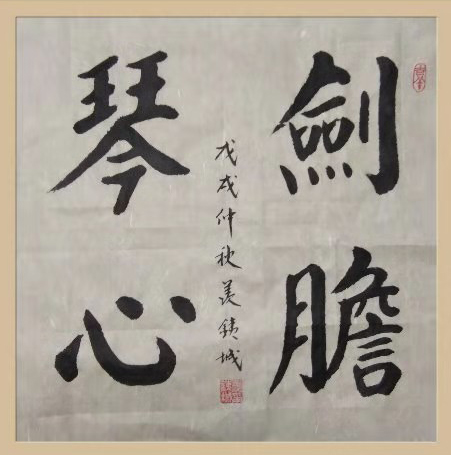 劍膽
琴心
戊戌仲秋姜鐵城